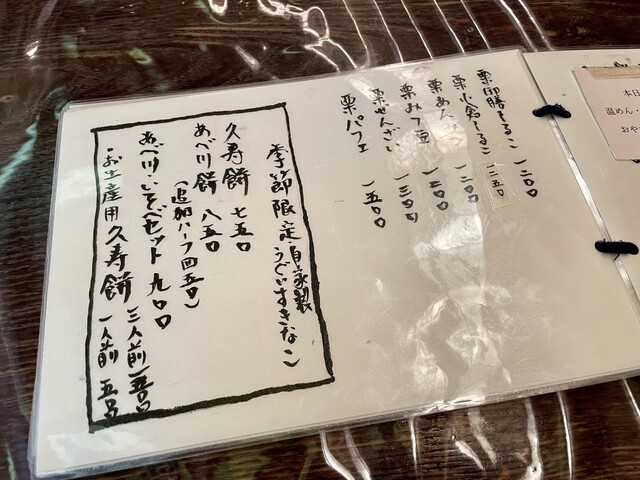 本日
温めん・
おや
栗御膳しるこ 一二〇〇
栗小倉しるこ 一二五〇
栗あんみつ 一二〇〇
栗みつ豆 一二〇〇
栗ぜんざい 一三〇〇
栗パフェ 一五〇〇
季節限定自家製
うぐいすきなこ
久寿餅 七五〇
あべ川餅 八五〇
(追加ハーフ四五〇)
あべ川・いそべセット 九〇〇
・お土産用久寿餅 三人前一五〇〇
一人前 五〇〇